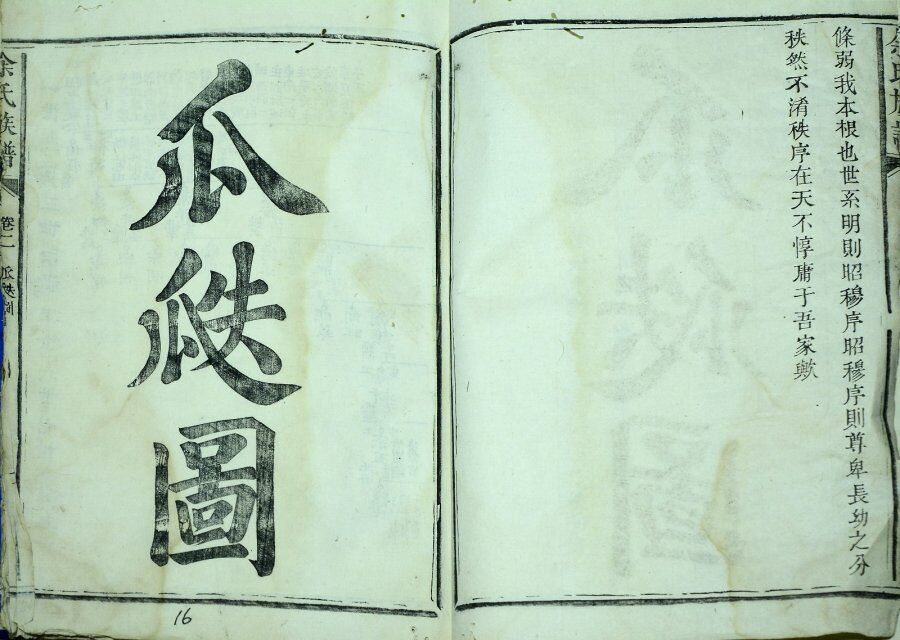 條弱我本根也世系明則昭穆序昭穆序則尊卑長幼之分
秩然不淆秩序在天不惇庸于吾家歟
瓜瓞圖
余氏族譜
卷二
瓜瓞
16